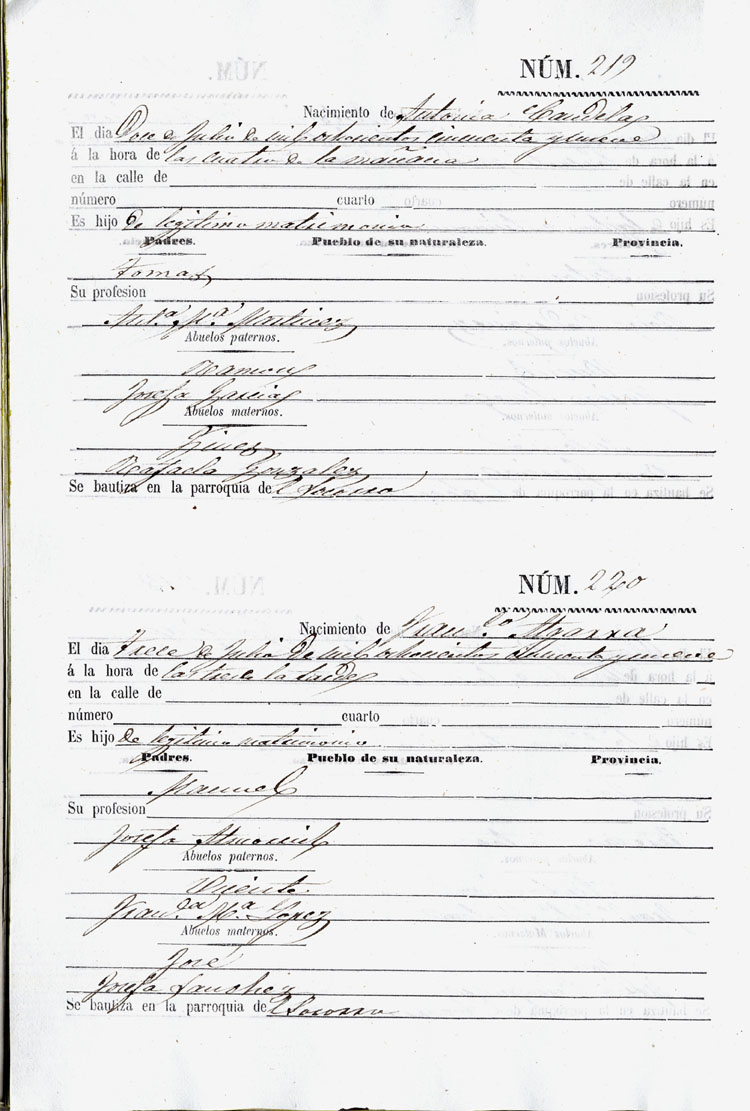 NÚM. 219
Nacimiento de Antonia Candelas
El dia Doce de Julio de mil ochocientos cincuenta y nueve
á la hora de las cuatro de la mañana
en la calle de
número cuarto
Es hijo de legitimo matrimonio
Padres. Pueblo de su naturaleza. Provincia.
Tomas
Su profesion
Ant.ª M.ª Martinez
Abuelos paternos.
Ramon
Josefa Garcias
Abuelos maternos.
Gines
Rafaela Gonzalez
Se bautiza en la parroquia de l Socorro
NÚM. 220
Nacimiento de Fran.co Algarra
El dia Trece de Julio de mil ochocientos cincuenta y nueve
á la hora de las tres de la tarde
en la calle de
número cuarto
Es hijo de legitimo matrimonio
Padres. Pueblo de su naturaleza. Provincia.
Manuel
Su profesion
Josefa
Abuelos paternos.
Vicente
Fran.ca M.ª Lopez
Abuelos maternos.
José
Josefa Sanchez
Se bautiza en la parroquia de l Socorro